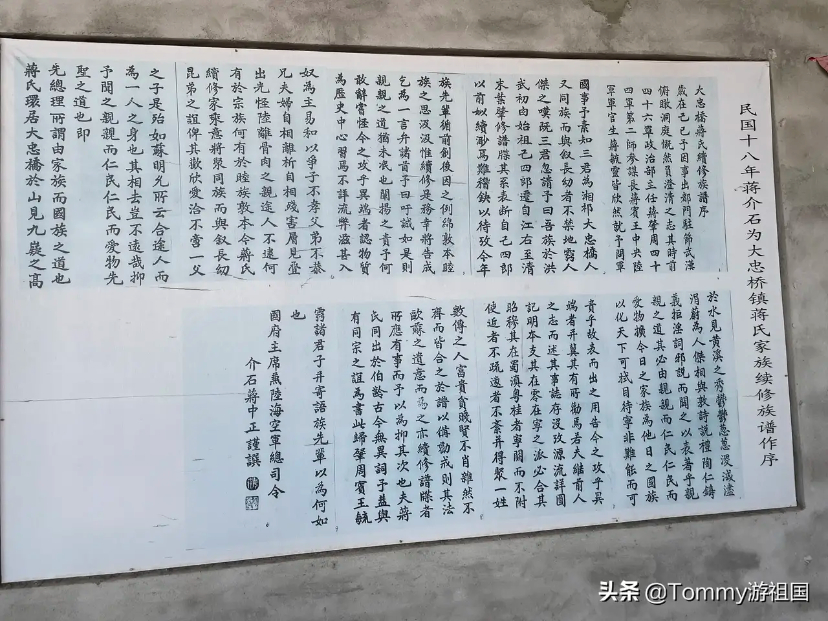 民国十八年蒋介石为大忠桥镇蒋氏家族续修族谱作序
大忠橋蔣氏續修族譜序
歲在己巳予因事出都門駐節武漢
俯瞰洞庭慨然員澄清之志其時前
四十六軍政治部主任蔣肇周四十
四軍第二師參謀長蔣賓王中央陸
軍軍官生蔣毓靈皆欣然就予閑軍
國事予素知三君為湘祁大忠橋人
又同族而與叙長幼者不禁地窮人
傑之嘆既三君請予曰吾族於洪
武初由始祖己四郎遷自江右至清
末葉肇修譜牒其系表断自己四郎
以前姒續邈焉難稽缺以待攷今年
族先軰循前創後因之例綿敦本睦
族之思汲汲惟續修是務幸將告成
乞為一言弁諸首予曰吁誠如是則
親親之道猶未泯也闡揚之責予何
敢辭嘗怪今之攻乎異端者認物質
為歷史中心習焉不詳流弊滋甚入
奴為主易和以爭子不孝父弟不恭
兄夫婦自相離析自相殘害層見疊
出光怪陸離骨肉之親途人不逮何
有於宗族何有於睦族敦本今蔣氏
續修家乘意將聚同族而與叙長幼
昆弟之誼俾其歡欣愛洽不啻一父
之子是殆如蘇明允所云合途人而
為一人之身也其相去豈不遠哉抑
予聞之親親而仁民仁民而愛物先
聖之道也即
先總理所謂由家族而國族之道也
蔣氏環居大忠橋於山見九嶷之高
於水見黃溪之秀鬱鬱葱葱浸滅濾
渭蔚為人傑相與敦詩說禮陶仁鑄
義拒淫詞邪説而闢之以表著乎親
親之道其必由親親而仁民仁民而
愛物擴今日之家族為他日之國族
以化天下可拭目待寧非難能而可
貴乎故表而出之用告今之攻乎異
端者并冀其有所勸焉若夫繼前人
之志而述其事誌存沒攷源流詳圖
記明本支其在零在寧之派必合其
昭穆其在蜀滇粤桂者寧闕而不附
使近者不疏遠者不紊并得聚一姓
數傳之人富貴貧賤賢不肖雖然不
齊而皆合之於譜以俻勸戒則其法
歐蘇之道意而為之亦續修譜牒者
所應有事而予以為抑其次也夫蔣
氏同出於伯齡古今無異詞予盖與
有同宗之誼為書此歸肇周賓王毓
靈諸君子并寄語族先軰以為何如
也
國府主席兼陸海空軍總司令
介石蔣中正謹譔
头条 @Tommy游祖国